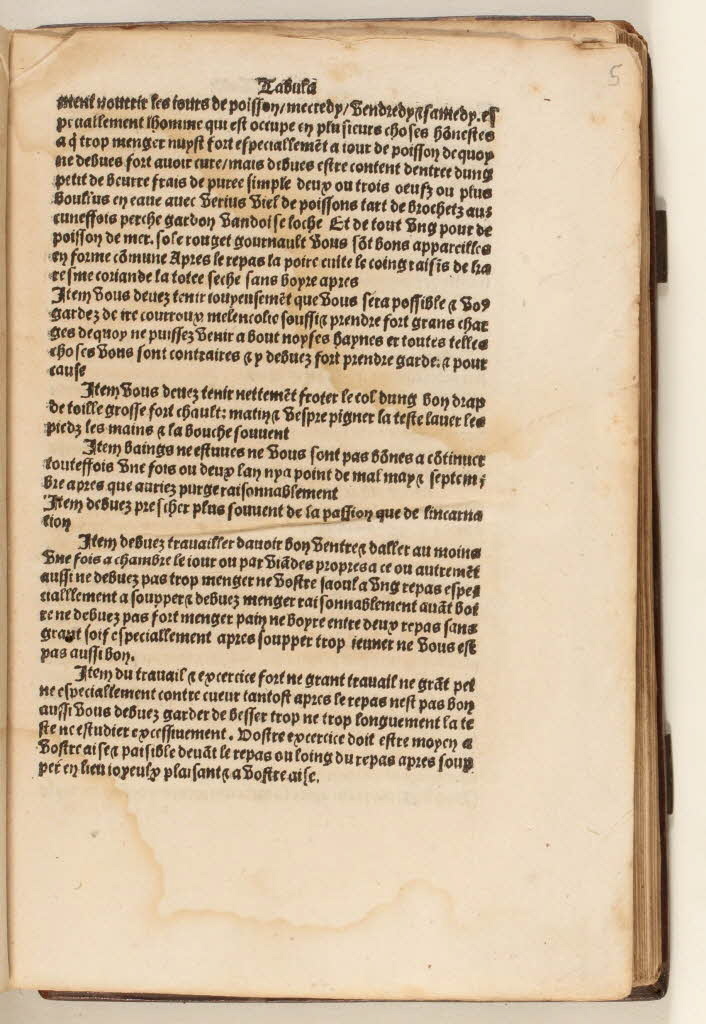 5
Tabula
ment nourrir les iours de poisson/mecredy/Vendredy⁊samedy.es
peciallement lhomme qui est occupe en plusieurs choses hōnestes
a q̄ trop menger nuyst fort especiallemēt a iour de poisson de quoy
ne debues fort auoir cure/mais debues estre content dentree dung
petit de beurre frais de puree simple deux ou trois oeufz ou plus
boulius en eaue auec Verius Viel de poissons tart de brochetz auc
cuneffois perche gardon Vandoise loche Et de tout Vng pour de
poisson de mer. sole rouget gournault Vous sōt bons appareilles
en forme cōmune Apres le repas la poire cuite le coing raisīs de ka
resme coriande la totee seche sans boyre apres
Item Vous deuez tenir ioyeusemēt que Vous sera possible ⁊ Vo9
gardez de ire courroux melencolie soussi⁊ prendre fort grans char
ges de quoy ne puissez Venir a bout noyses haynes et toutes telles
choses Vous sont contraires ⁊ y debuez fort prendre garde. ⁊ pour
cause
Item Vous deuez tenir nettemēt froter le col dung bon drap
de toille grosse fort chault: matin⁊ Vespre pigner la teste lauer les
piedz les mains ⁊ la bouche souuent
Item baings ne estuues ne Vous sont pas bōnes a cōtinuer
touteffois Vne fois ou deux lan nya point de mal may⁊ septem⸗
bre apres que auriez purge raisonnablement
Item debuez prescher plus souuent de la passion que de lincarna
tion
Item debuez trauailler dauoir bon Ventre⁊ daller au moins
Vne fois a chambre le iour ou par viādes propres a ce ou autremēt
aussi ne debuez pas trop menger ne Vostre saoul a Vng repas espe
ciallement a soupper⁊ debuez menger raisonnablement auāt boi
re ne debuez pas fort menger pain ne boyre entre deux repas sans
grant soif especiallement apres soupper trop ieuner ne Vous est
pas aussi bon.
Item du trauail ⁊ excercice fort ne grant trauail ne grāt pei
ne especiallement contre cueur tantost apres le repas nest pas bon
aussi Vous debuez garder de besser trop ne trop longuement la te
ste ne estudier excessiuement. Vostre excercice doit estre moyen a
Vostre aise⁊ paisible deuāt le repas ou loing du repas apres soup
per en lieu ioyeulx plaisant⁊ a Vostre aise.